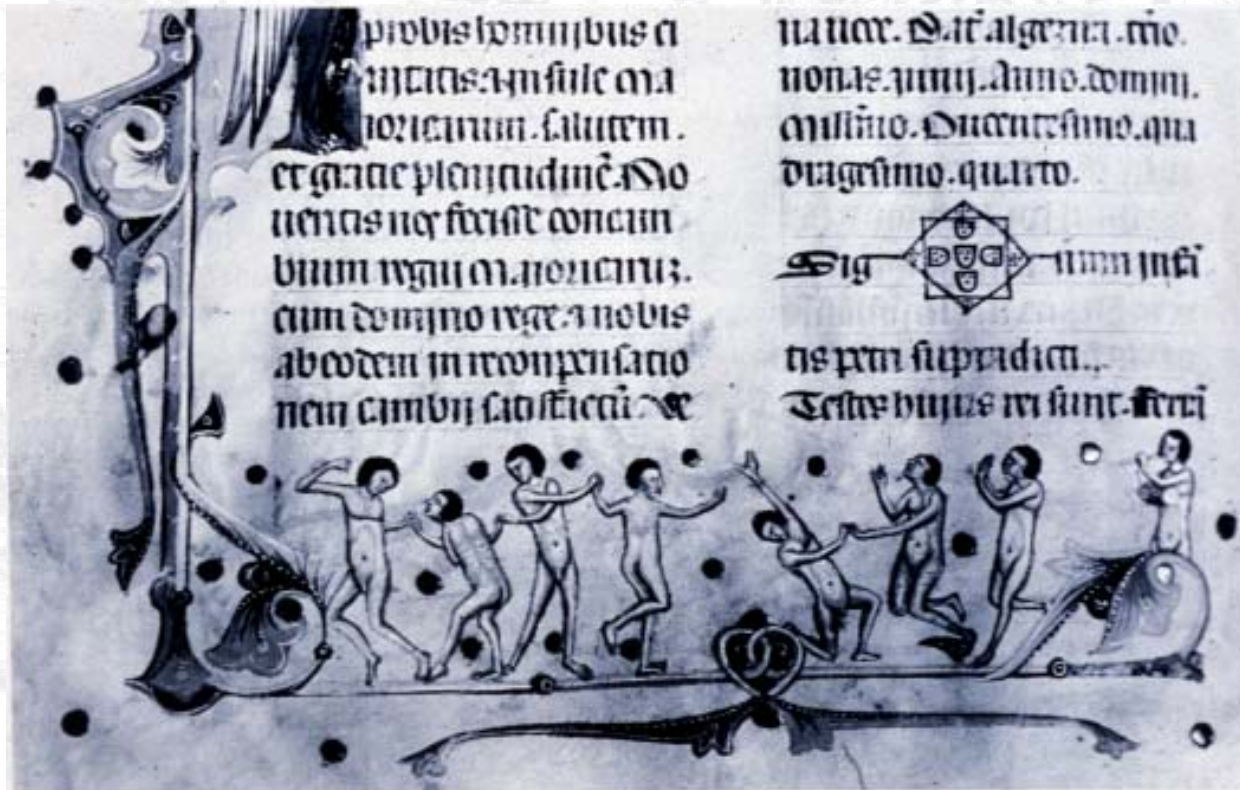 probis hominibus ci
uitatis & insule Ma
ioricarum . salutem .
et gracie plenitudinē . No
ueritis nos fecisse concam
bium regni Maioricarum .
cum domino rege . & nobis
ab eodem in recompensatio
nem cambii satisfactū . Ve
Dat̄ algezira . t̄cio
nonas . iunii . Anno . domini .
millīmo . Ducentesimo . qua
dragesimo . quarto .
Sig num infā
tis petri supradicti .
Testes huius rei sunt .